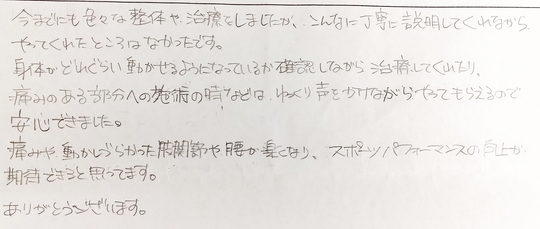 今までにも色々な整体や治療をしましたが、こんなに丁寧に説明してくれながら
やってくれたところはなかったです。
身体がどれぐらい動かせるようになっているか確認しながら治療してくれたり、
痛みのある部分への施術の時などは、ゆっくり声をかけながらやってもらえるので
安心できました。
痛みや、動かしづらかった股関節や腰が楽になり、スポーツパフォーマンスの向上が
期待できると思ってます。
ありがとうございます。